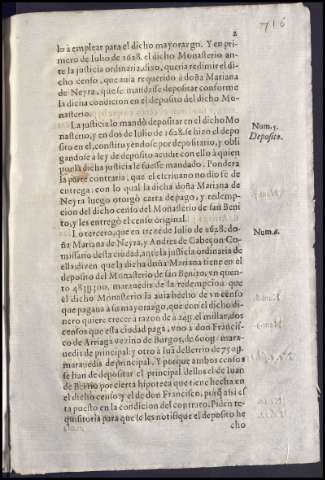 716
2
lo à emplear para el dicho mayorazgo. Y en pri-
mero de Iulio de 1628. el dicho Monasterio an-
te la justicia ordinaria, dixo, queria redimir el di-
cho censo, que auia requerido a doña Mariana
de Neyra, que se mandasse depositar conforme
la dicha condicion en el deposito del dicho Mo-
nasterio.
La justicia lo mandò depositar en el dicho Mo
nasterio, y en dos de Iulio de 1628. se hizo el depo
sito en el, constituyendose por depositario, y obli
gandose a ley de deposito acudir con ello à quien
por la dicha justicia le fuesse mandado. Pondera
la parte contraria, que el escriuano no dio fè de
entrega: con lo qual la dicha doña Mariana de
Neyra luego otorgò carta de pago, y redemp-
cion del dicho censo del Monasterio de san Beni
to, y les entregò el censo original.
Num.5.
Deposito.
Lo tercero, que en treze de Iulio de 1628. do-
ña Mariana de Neyra, y Andres de Cabeçon Co-
missario desta ciudad, ante la justicia ordinaria de
ella, dizen que la dicha doña Mariana tiene en el
deposito del Monasterio de san Benito, vn quen-
to 48 maravedis de la redempcion que
el dicho Monasterio la auia hecho de vn censo
que pagaua à su mayorazgo, que con el dicho di-
nero quiere crecer à razon de à 24y. el millar, dos
censos que esta ciudad paga, vno a don Francis-
co de Arriaga vezino de Burgos, de 600y. mara-
uedis de principal: y otro a Iuã de Berrio de 750y.
maravedis de principal. Y porque ambos censos
se han de depositar el principal dellos el de Iuan
de Berrio por cierta hipoteca que tiene hecha en
el dicho censo y el de don Francisco, porq̃ assi es
ta puesto en la condicion del contrato. Piden re-
quisitoria para que se les notifique el deposito he
cho
Num.6.